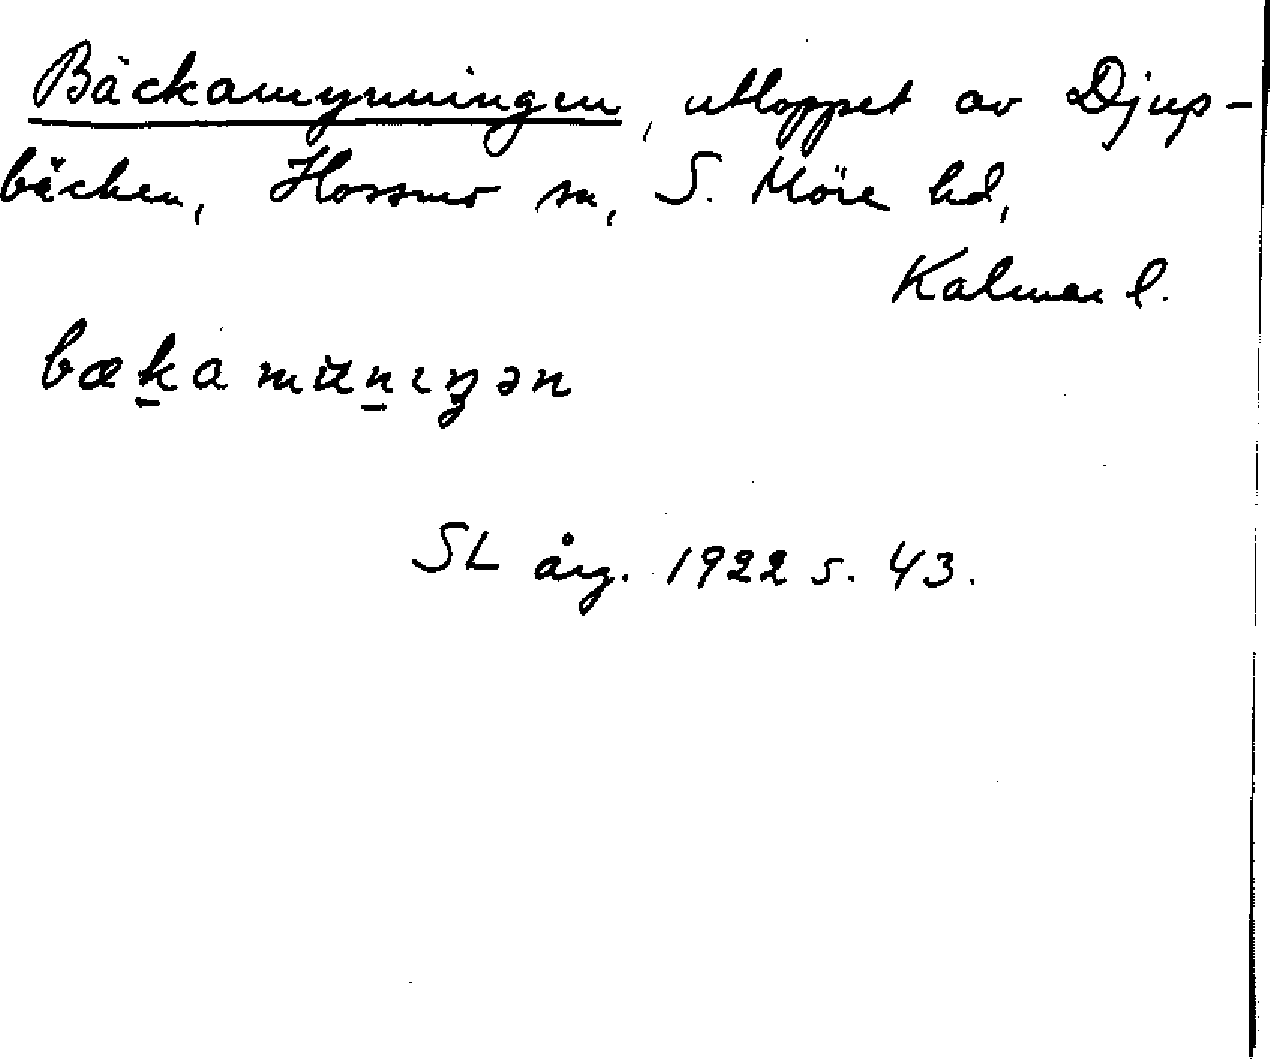 Bäckamynningen, utloppet av Djup-
bäcken, Hossmo sn, S. Möre hd,
Kalmar l.
bæk̲amün̲ıŋən
SL årg. 1922 s. 43.